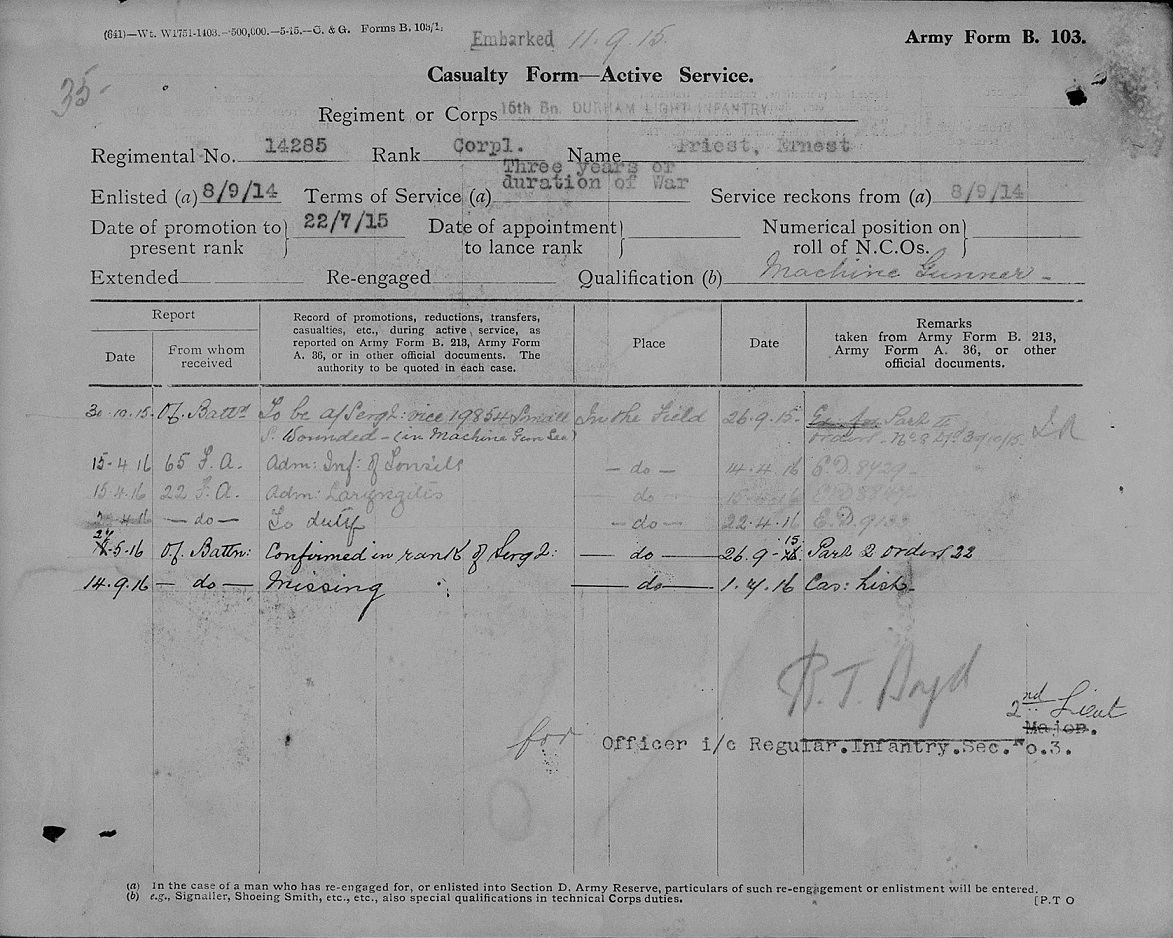 (641)—Wt. W1751-1403.—500,000.—5-15.—C. & G. Forms B. 103/1.
Embarked 11.9.15.
Army Form B. 103.
35-
Casualty Form—Active Service.
Regiment or Corps 15th Bn. DURHAM LIGHT INFANTRY
Regimental No. 14285 Rank Corpl. Name Priest, Ernest
Enlisted (a) 8/9/14 Terms of Service (a) Three years or duration of War Service reckons from (a) 8/9/14
Date of promotion to present rank } 22/7/15 Date of appointment to lance rank } Numerical position on roll of N.C.Os. }
Extended Re-engaged Qualification (b) Machine Gunner -
Report
Date
From whom received
Record of promotions, reductions, transfers,
casualties, etc., during active service, as
reported on Army Form B. 213, Army Form
A. 36, or in other official documents. The
authority to be quoted in each case.
Place
Date
Remarks
taken from Army Form B. 213,
Army Form A. 36, or other
official documents.
30.10.15. O/. Battn To be a/Sergt: vice 19854 Small In the Field 26.9.15. Part II
Wounded - (in Machine Gun Sec) orders - No 8
15.4.16 65 F.A. Adm: Inf: of Tonsils — do — 14.4.16 E.D.8429
15.4.16 22 F.A. Adm: Laryngitis — do — 15.4.16
— do — To duty — do — 22.4.16
5.16 O/. Battn: Confirmed in rank of Sergt: — do — 26.9.15 Part 2 orders 22
14.9.16 — do — Missing — do — 1.7.16 Cas: List
R.T. Boyd
2nd Lieut
Major.
for Officer i/c Regular.Infantry.Sec.No.3.
(a) In the case of a man who has re-engaged for, or enlisted into Section D, Army Reserve, particulars of such re-engagement or enlistment will be entered.
(b) e.g., Signaller, Shoeing Smith, etc., etc., also special qualifications in technical Corps duties.
[P.T O